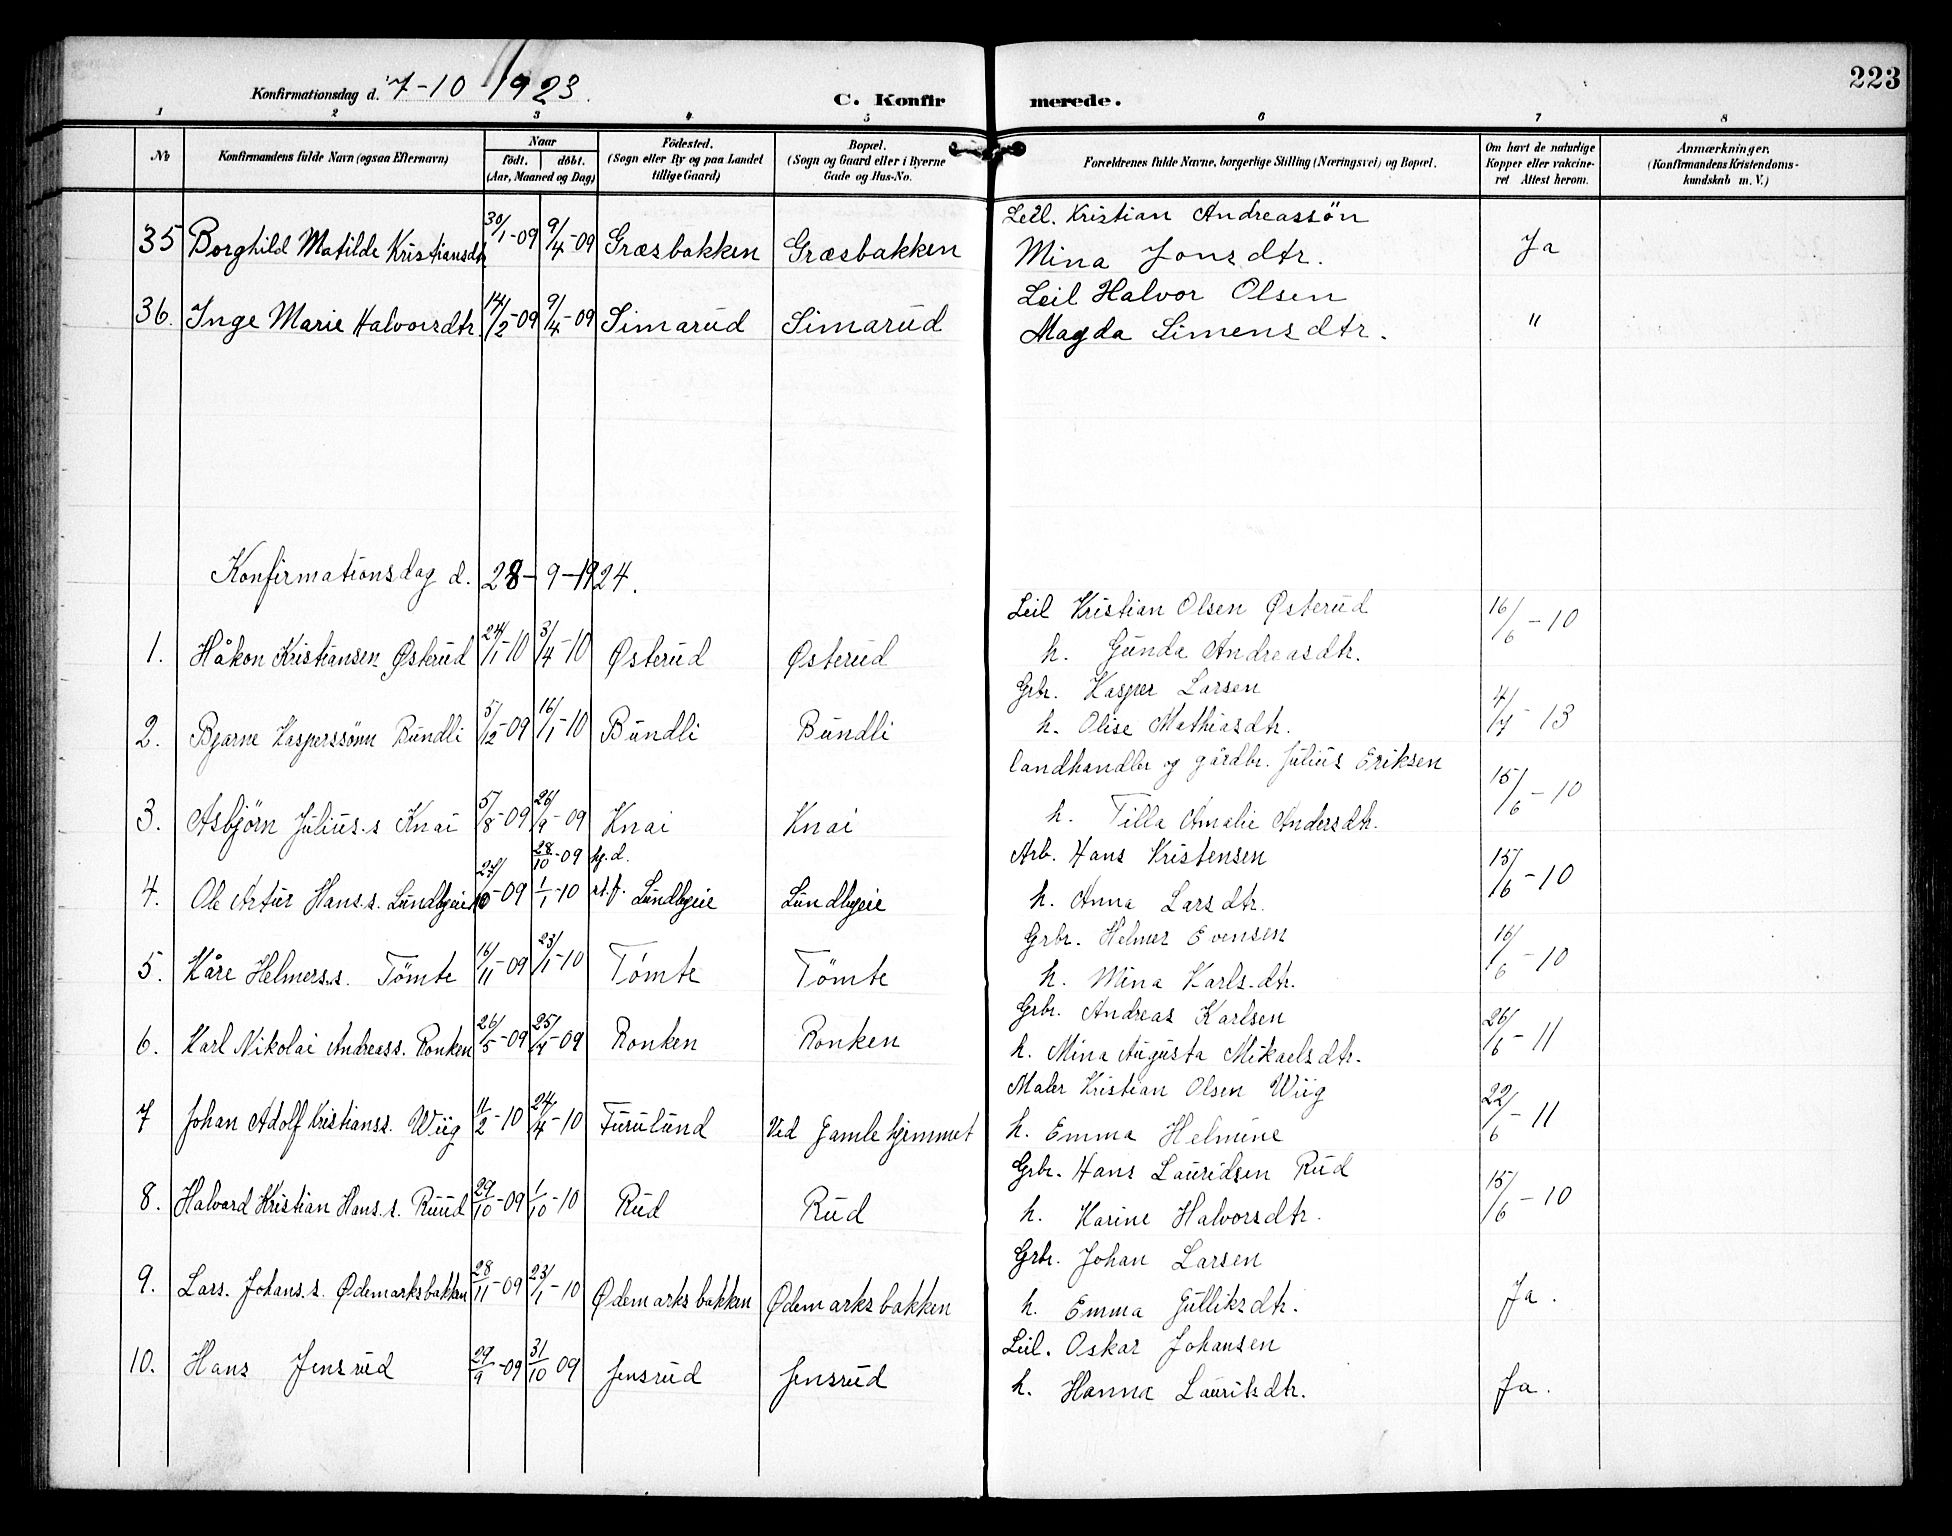 223
Konfirmationsdag d. 7-10 1923.
C. Konfirmerede.
1 2 3 4 5 6 7 8
No
Konfirmandens fulde Navn (ogsaa Efternavn)
Naar
födt. döbt.
(Aar, Maaned og Dag)
Födested.
(Sogn eller By og paa Landet
tillige Gaard)
Bopæl.
(Sogn og Gaard eller i Byerne
Gade og Hus-No.
Forældrenes fulde Navne, borgerlige Stilling (Næringsvei) og Bopæl.
Om havt de naturlige
Kopper eller vakcine-
ret Attest herom.
Anmærkninger.
(Konfirmandens Kristendoms-
kundskab m. V.)
Leil. Kristian Andreassön
35 Borghild Matilde Kristiansdtr 30/1-09 9/4-09 Græsbakken Græsbakken Mina Jonsdtr. Ja
Leil Halvor Olsen
36. Inge Marie Halvorsdtr. 14/2-09 9/4-09 Simarud Simarud Magda Simensdtr. "
Konfirmationsdag d. 28-9-1924.
Leil Kristian Olsen Østerud 16/6-10
1. Håkon Kristiansen Østerud 24/1-10 3/4-10 Østerud Østerud h. Gunda Andreasdtr.
Grbr. Kasper Larsen 4/7-13
2. Bjarne Kasperssønn Bundli 5/12-09 16/1-10 Bundli Bundli h. Olise Mathiasdtr.
Landhandler og gårdbr. Julius Eriksen 15/6-10
3. Asbjörn Julius.s Knai 5/8-09 26/9-09 Knai Knai h. Tilla Amalie Andersdtr.
28/10-09 hj.d. Arb. Hans Kristensen 15/6-10
4. Ole Artur Hans.s. Lundbyeie 23/10-09 1/1-10 st.f. Lundbyeie Lundbyeie h. Anna Larsdtr.
Grbr. Helmer Evensen 16/6-10
5. Kåre Helmers.s. Tömte 16/11-09 23/1-10 Tömte Tömte h. Mina Karls.dtr.
Grbr. Andreas Karlsen 26/6-11
6. Karl Nikolai Andreass. Ronken 26/5-09 25/4-09 Ronken Ronken h. Mina Augusta Mikaelsdtr.
Maler Kristian Olsen Wiig 22/6-11
7 Johan Adolf Kristianss. Wiig 11/2-10 24/4-10 Furulund Ved Gamlehjemmet h. Emma Helmine
Grbr. Hans Lauridsen Rud 15/6-10
8. Halvard Kristian Hans.s. Ruud 29/10-09 1/10-10 Rud Rud h. Karine Halvorsdtr.
Grbr. Johan Larsen
9. Lars. Johans.s. Ødemarksbakken 28/11-09 23/1-10 Ødemarksbakken Ødemarksbakken h. Emma Gulliksdtr. Ja.
Leil. Oskar Johansen
10. Hans Jensrud 29/9-09 31/10 09 Jensrud Jensrud h. Hanna Lauritsdtr. Ja.